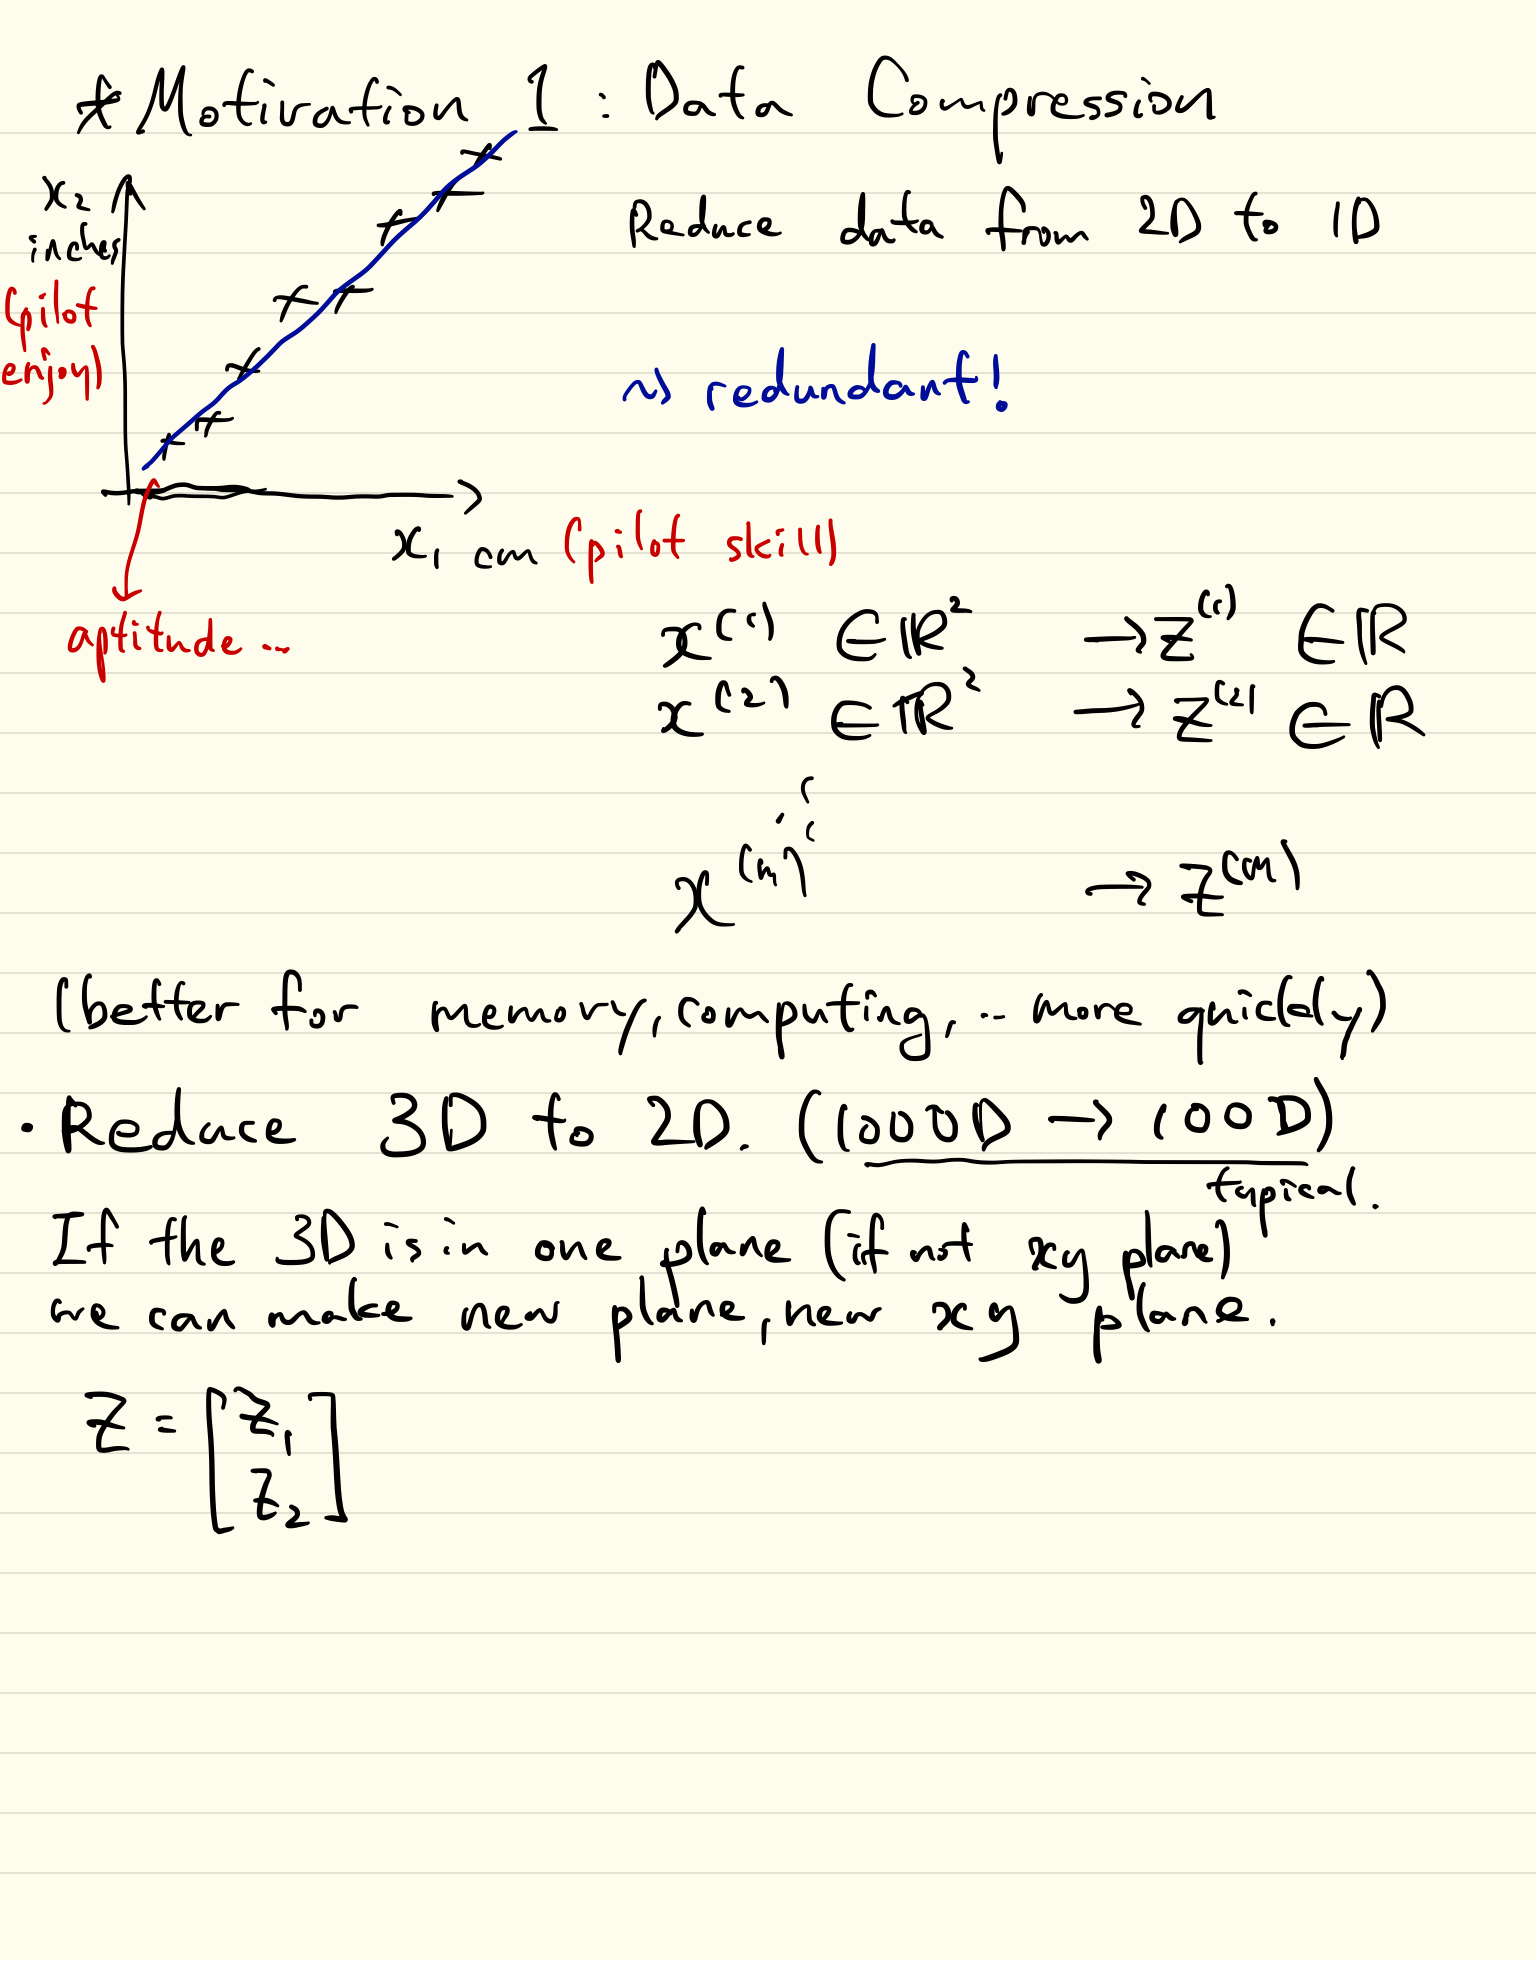 * Motivation 1 : Data Compression
x₂
inches
(pilot
enjoy)
Reduce data from 2D to 1D
~> redundant!
x₁ cm (pilot skill)
aptitude ...
x⁽¹⁾ ∈ ℝ² → z⁽¹⁾ ∈ ℝ
x⁽²⁾ ∈ ℝ² → z⁽²⁾ ∈ ℝ
⋮
x⁽ᵐ⁾ → z⁽ᵐ⁾
(better for memory, computing, .. more quickly)
· Reduce 3D to 2D. (1000D → 100D)
typical.
If the 3D is in one plane (if not xy plane)
we can make new plane, new xy plane.
z = [z₁
z₂]